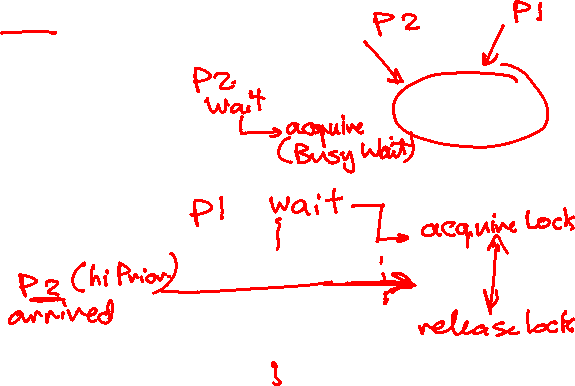 P2 P1
P2
wait
acquire
(Busy wait)
P1 wait
acquire Lock
P2 (hi Prior)
arrived
release lock
}